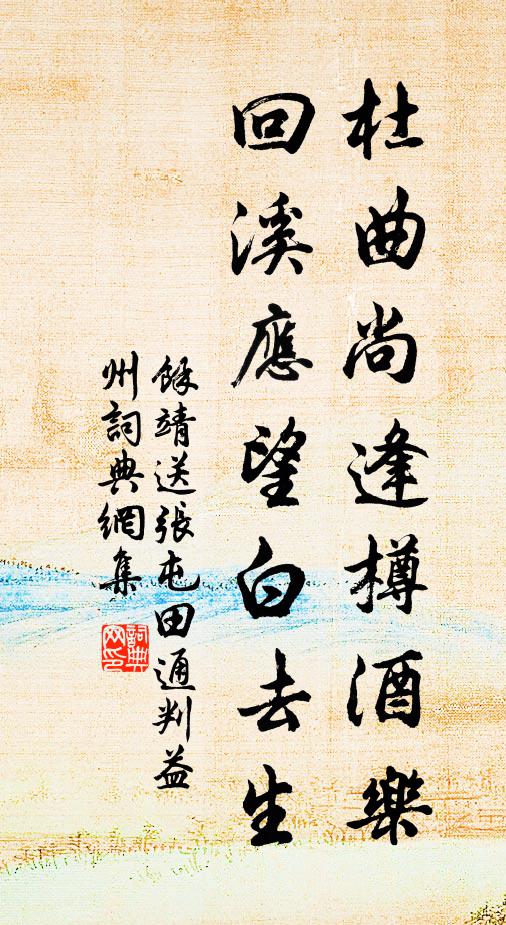 杜曲尚逢樽酒樂
回溪應望白去生
餘靖送張屯田通判益
州詞典網集
詞典网印